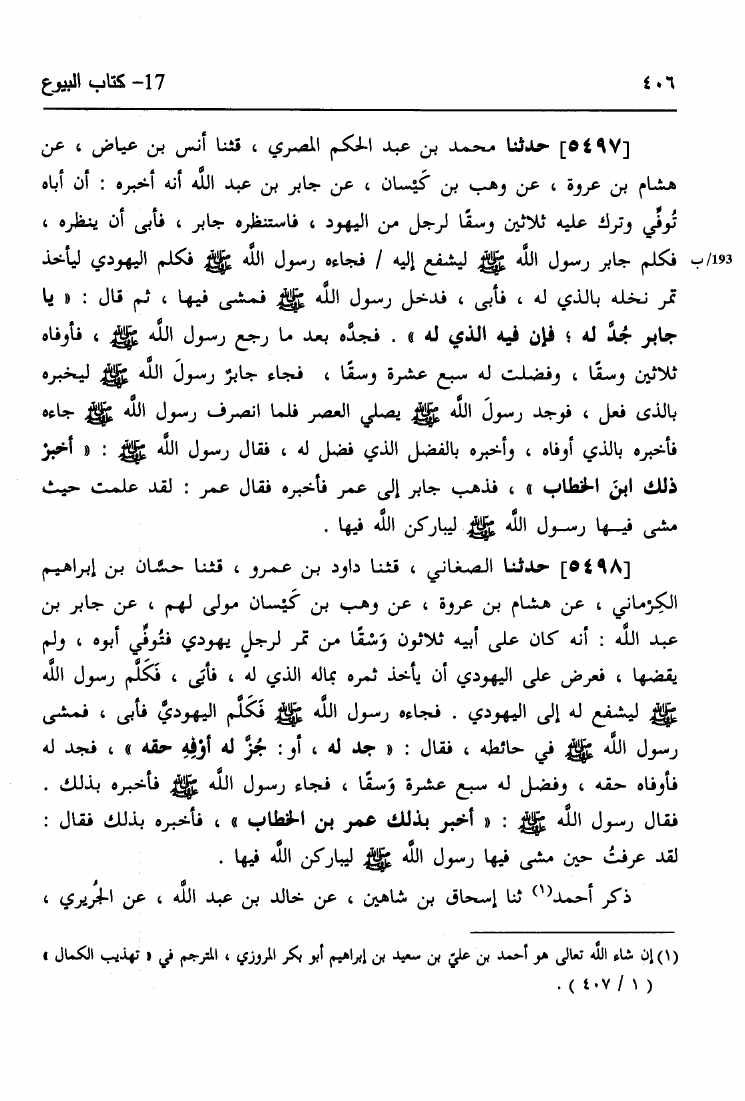 ٤٠٦ 17- كتاب البيوع
[٥٤٩٧] حدثنا محمد بن عبد الحكم المصري ، قثنا أنس بن عياض ، عن
هشام بن عروة ، عن وهب بن كَيْسان ، عن جابر بن عبد اللَّه أنه أخبره : أن أباه
تُوفِّي وترك عليه ثلاثين وسقًا لرجل من اليهود ، فاستنظره جابر ، فأبى أن ينظره ،
فكلم جابر رسول اللَّه ﷺ ليشفع إليه / فجاءه رسول اللَّه ﷺ فكلم اليهودي ليأخذ 193/ب
تمر نخله بالذي له ، فأبى ، فدخل رسول اللَّه ﷺ فمشى فيها ، ثم قال : « يا
جابر جُدَّ له ؛ فإن فيه الذي له » . فجدَّه بعد ما رجع رسول اللَّه ﷺ ، فأوفاه
ثلاثين وسقًا ، وفضلت له سبع عشرة وسقًا ، فجاء جابرٌ رسولَ اللَّه ﷺ ليخبره
بالذى فعل ، فوجد رسولَ اللَّه ﷺ يصلي العصر فلما انصرف رسول اللَّه ﷺ جاءه
فأخبره بالذي أوفاه ، وأخبره بالفضل الذي فضل له ، فقال رسول اللَّه ﷺ : « أخبرْ
ذلك ابنَ الخطاب » ، فذهب جابر إلى عمر فأخبره فقال عمر : لقد علمت حيث
مشى فيها رسول اللَّه ﷺ ليباركن اللَّه فيها .
[٥٤٩٨] حدثنا الصغاني ، قثنا داود بن عمرو ، قثنا حسَّان بن إبراهيم
الكِرْماني ، عن هشام بن عروة ، عن وهب بن كَيْسان مولى لهم ، عن جابر بن
عبد اللَّه : أنه كان على أبيه ثلاثون وَسْقًا من تمر لرجلٍ يهودي فتُوفِّي أبوه ، ولم
يقضها ، فعرض على اليهودي أن يأخذ ثمره بماله الذي له ، فأبَى ، فَكَلَّم رسول اللَّه
ﷺ ليشفع له إلى اليهودي . فجاءه رسول اللَّه ﷺ فَكَلَّم اليهوديَّ فأبى ، فمشى
رسول اللَّه ﷺ في حائطه ، فقال : « جد له ، أو : جُزَّ له أوْفِهِ حقه » ، فجد له
فأوفاه حقه ، وفضل له سبع عشرة وَسقًا ، فجاء رسول اللَّه ﷺ فأخبره بذلك .
فقال رسول اللَّه ﷺ : « أخبر بذلك عمر بن الخطاب » ، فأخبره بذلك فقال :
لقد عرفتُ حين مشى فيها رسول اللَّه ﷺ ليباركن اللَّه فيها .
ذكر أحمد(١) ثنا إسحاق بن شاهين ، عن خالد بن عبد اللَّه ، عن الجُريري ،
(١) إن شاء اللَّه تعالى هو أحمد بن عليّ بن سعيد بن إبراهيم أبو بكر المروزي ، المترجم في « تهذيب الكمال »
( ١ / ٤٠٧ ) .